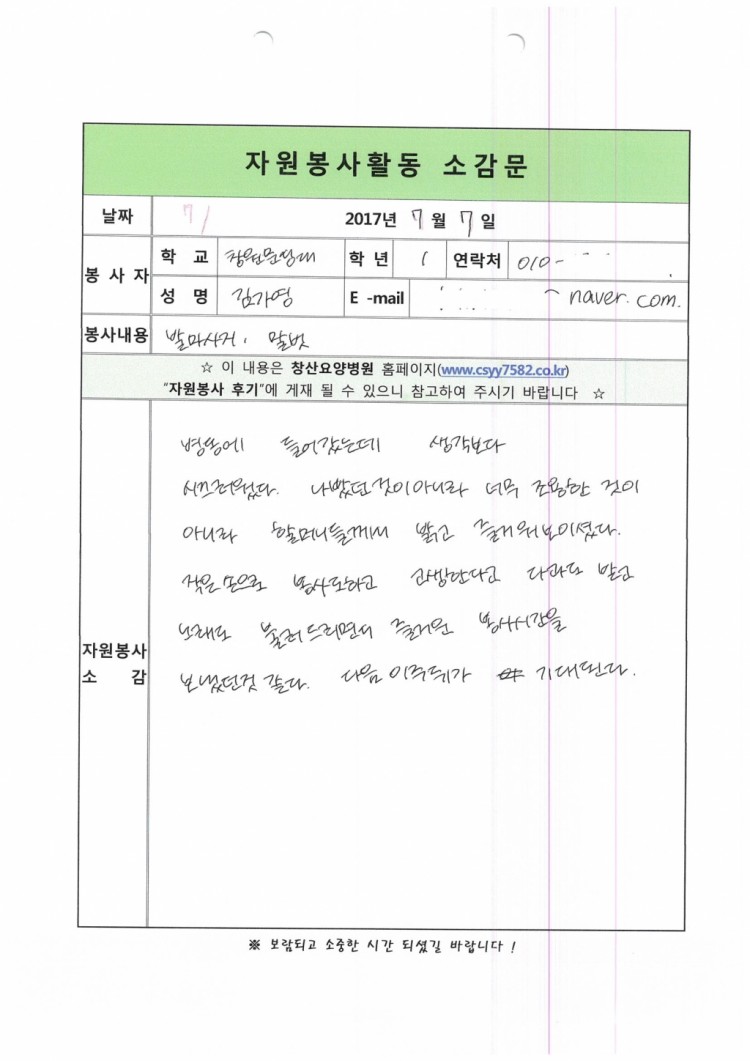 자원봉사활동 소감문
날짜 7/ 2017년 7월 7일
봉사자 학교 창원문성대 학년 1 연락처 010-
성명 김가영 E-mail naver.com.
봉사내용 발마사지, 말벗
☆ 이 내용은 창산요양병원 홈페이지(www.csyy7582.co.kr)
"자원봉사 후기"에 게재 될 수 있으니 참고하여 주시기 바랍니다 ☆
자원봉사 소감
병동에 들어갔는데 생각보다
시끄러웠다. 나빴던것이아니라 너무 조용한 것이
아니라 할머니들께서 밝고 즐거워보이셨다.
작은 손으로 봉사도하고 고생한다고 다과도 받고
노래도 불러드리면서 즐거운 봉사시간을
보냈던것 같다. 다음 이주뒤가 기대된다.
※ 보람되고 소중한 시간 되셨길 바랍니다 !